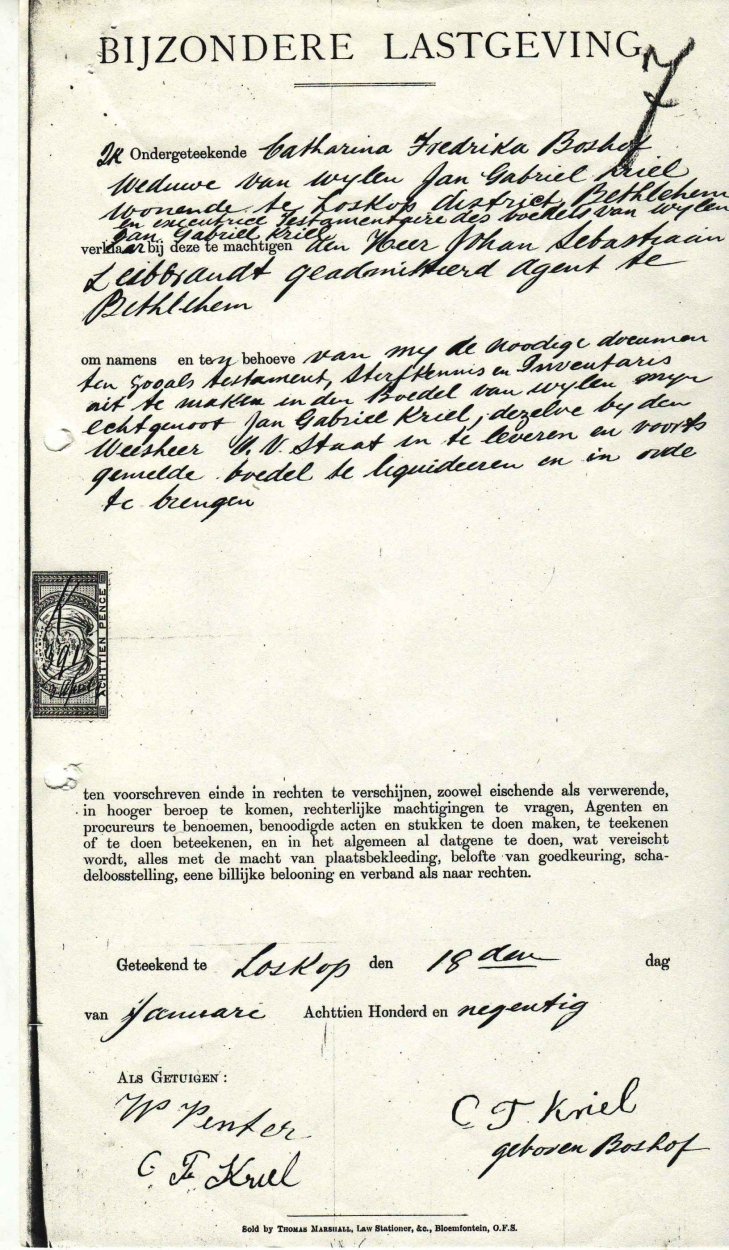 BIJZONDERE LASTGEVING
7
Ik Ondergeteekende Catharina Fredrika Boshof
Weduwe van wylen Jan Gabriel Kriel
wonende te Loskop district Bethlehem
en executrice Testamentaire des boedels van wylen
Jan Gabriel Kriel
verklaar bij deze te machtigen den Heer Johan Sebastiaan
Leibbrandt geadmitteerd Agent te
Bethlehem
om namens en ten behoeve van my de noodige documen
ten zooals testament, Sterfkennis en Inventaris
uit te maken in den Boedel van wylen myn
echtgenoot Jan Gabriel Kriel, dezelve by den
Weesheer O. V. Staat in te leveren en voorts
gemelde boedel te liquideeren en in orde
te brengen
ACHTTIEN PENCE
ten voorschreven einde in rechten te verschijnen, zoowel eischende als verwerende,
in hooger beroep te komen, rechterlijke machtigingen te vragen, Agenten en
procureurs te benoemen, benoodigde acten en stukken te doen maken, te teekenen
of te doen beteekenen, en in het algemeen al datgene te doen, wat vereischt
wordt, alles met de macht van plaatsbekleeding, belofte van goedkeuring, scha-
deloosstelling, eene billijke belooning en verband als naar rechten.
Geteekend te Loskop den 18 den dag
van Januari Achttien Honderd en negentig
ALS GETUIGEN :
W Penter
C F Kriel
C F Kriel
geboren Boshof
Sold by THOMAS MARSHALL, Law Stationer, &c., Bloemfontein, O.F.S.